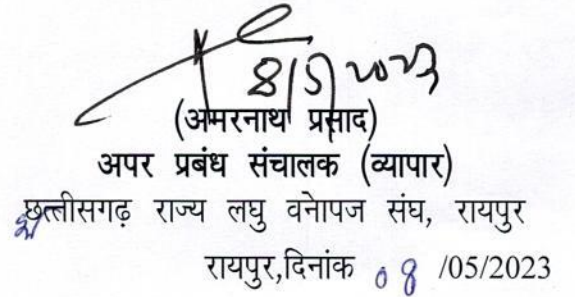 8/5/2023
(अमरनाथ प्रसाद)
अपर प्रबंध संचालक (व्यापार)
छत्तीसगढ़ राज्य लघु वनोपज संघ, रायपुर
रायपुर,दिनांक 08 /05/2023